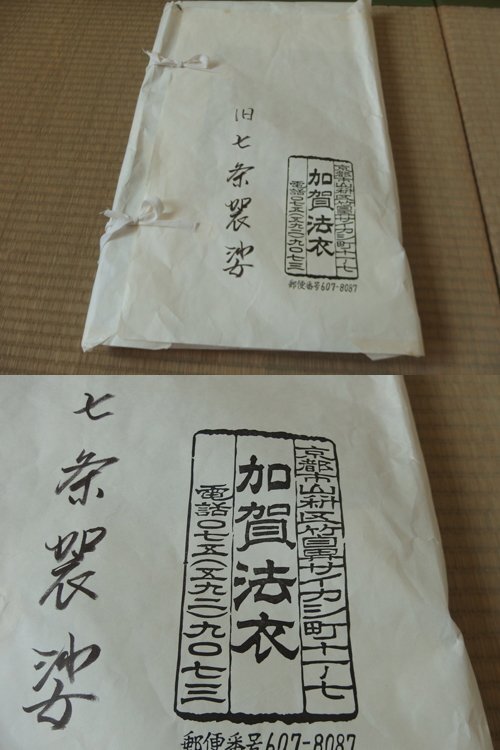 京都市山科区竹鼻サイカシ町十一ノ七
加賀法衣
電話〇七五(五九二)九〇七三
郵便番号607-8087
旧七条袈裟
京都市山科区竹鼻サイカシ町十一ノ七
加賀法衣
電話〇七五(五九二)九〇七三
郵便番号607-8087
七条袈裟